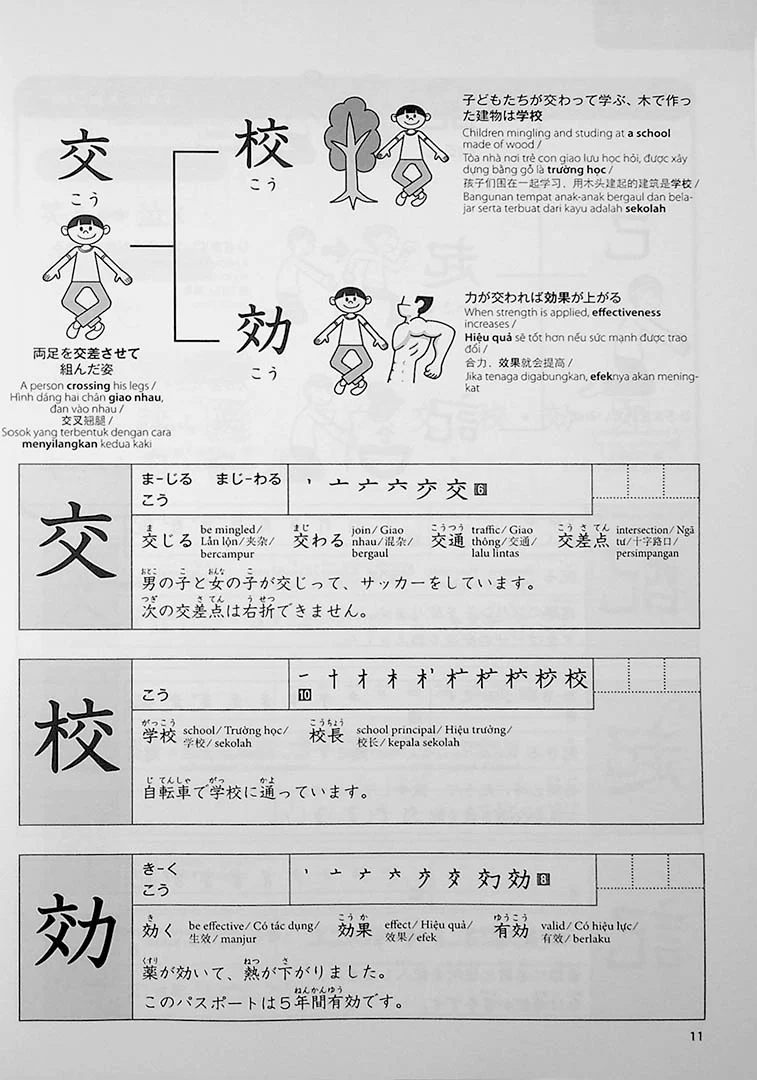 交
こう
両足を交差させて
組んだ姿
A person crossing his legs /
Hình dáng hai chân giao nhau,
đan vào nhau /
交叉翘腿 /
Sosok yang terbentuk dengan cara
menyilangkan kedua kaki
校
こう
子どもたちが交わって学ぶ、木で作っ
た建物は学校
Children mingling and studing at a school
made of wood /
Tòa nhà nơi trẻ con giao lưu học hỏi, được xây
dựng bằng gỗ là trường học /
孩子们围在一起学习，用木头建起的建筑是学校 /
Bangunan tempat anak-anak bergaul dan bela-
jar serta terbuat dari kayu adalah sekolah
効
こう
力が交われば効果が上がる
When strength is applied, effectiveness
increases /
Hiệu quả sẽ tốt hơn nếu sức mạnh được trao
đổi /
合力，效果就会提高 /
Jika tenaga digabungkan, efeknya akan mening-
kat
交
ま-じる まじ-わる
こう
6
ま
交じる be mingled/ Lẫn lộn/夹杂/ bercampur
まじ
交わる join/ Giao nhau/混杂/ bergaul
こうつう
交通 traffic/ Giao thông/交通/ lalu lintas
こうさてん
交差点 intersection/ Ngã tư/十字路口/ persimpangan
おとこ こ おんな こ
男の子と女の子が交じって、サッカーをしています。
つぎ さてん うせつ
次の交差点は右折できません。
校
こう
10
がっこう
学校 school/ Trường học/ 学校/ sekolah
こうちょう
校長 school principal/ Hiệu trưởng/ 校长/ kepala sekolah
じてんしゃ がっ かよ
自転車で学校に通っています。
効
き-く
こう
8
き
効く be effective/ Có tác dụng/ 生效/ manjur
こうか
効果 effect/ Hiệu quả/ 效果/ efek
ゆうこう
有効 valid/ Có hiệu lực/ 有效/ berlaku
くすり ねつ さ
薬が効いて、熱が下がりました。
ねんかんゆう
このパスポートは５年間有効です。
11